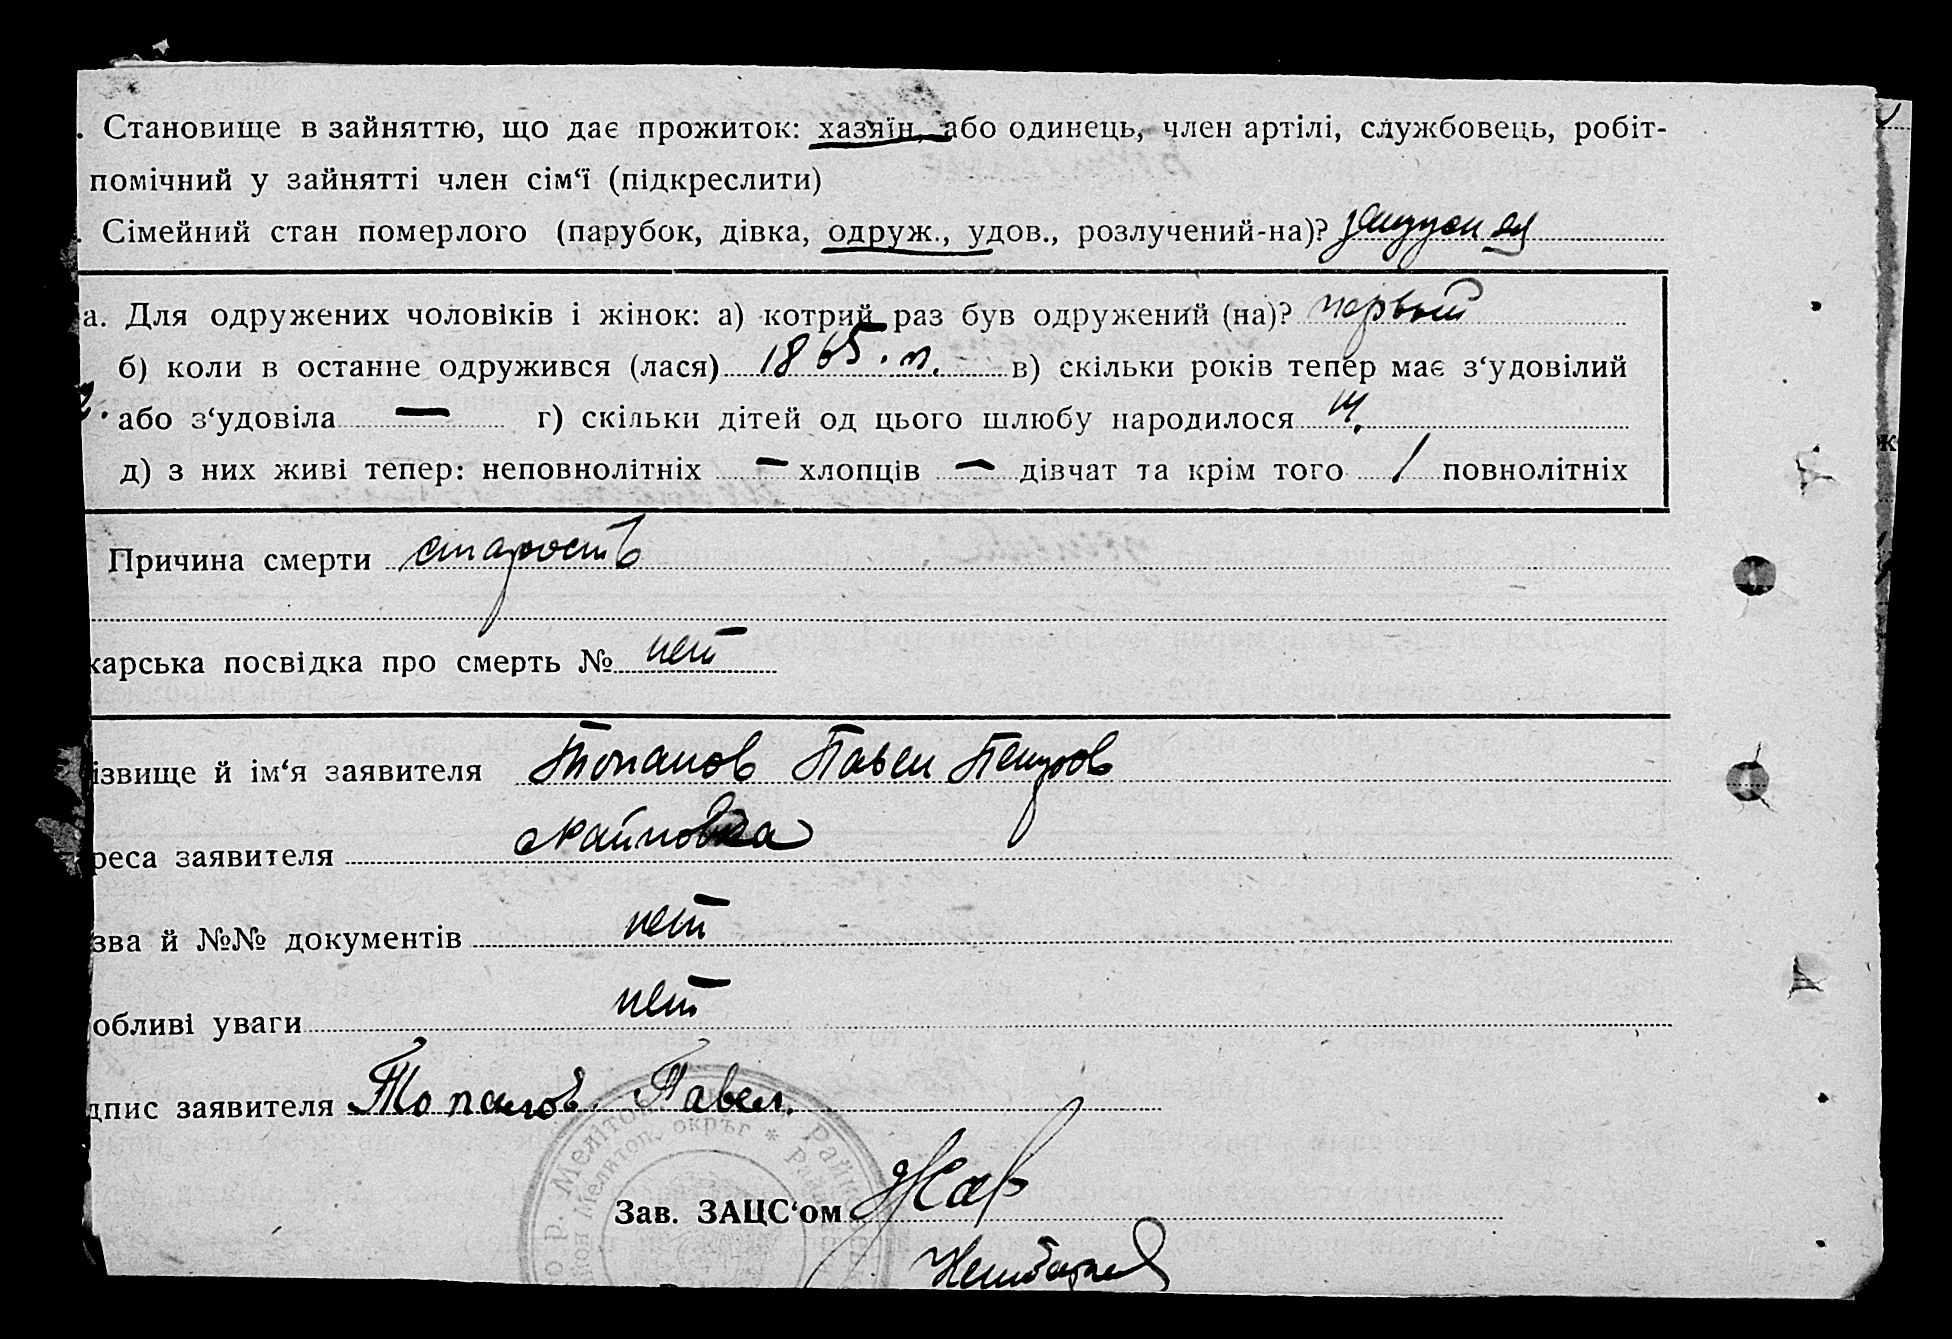 . Становище в зайняттю, що дає прожиток: хазяїн, або одинець, член артілі, службовець, робіт-
помічний у зайнятті член сім‘ї (підкреслити)
. Сімейний стан померлого (парубок, дівка, одруж., удов., розлучений-на)?
а. Для одружених чоловіків і жінок: а) котрий раз був одружений (на)? первый
б) коли в останнє одружився (лася) 1865. г. в) скільки років тепер має з‘удовілий
або з‘удовіла — г) скільки дітей од цього шлюбу народилося
д) з них живі тепер: неповнолітніх — хлопців — дівчат та крім того 1 повнолітніх
Причина смерти старость
карська посвідка про смерть № нет
ізвище й ім‘я заявителя Топалов Павел Петров
реса заявителя
зва й №№ документів нет
обливі уваги нет
дпис заявителя Топалов. Павел.
Меліто
Мелитоп. окръг * Рай
Зав. ЗАЦС‘ом